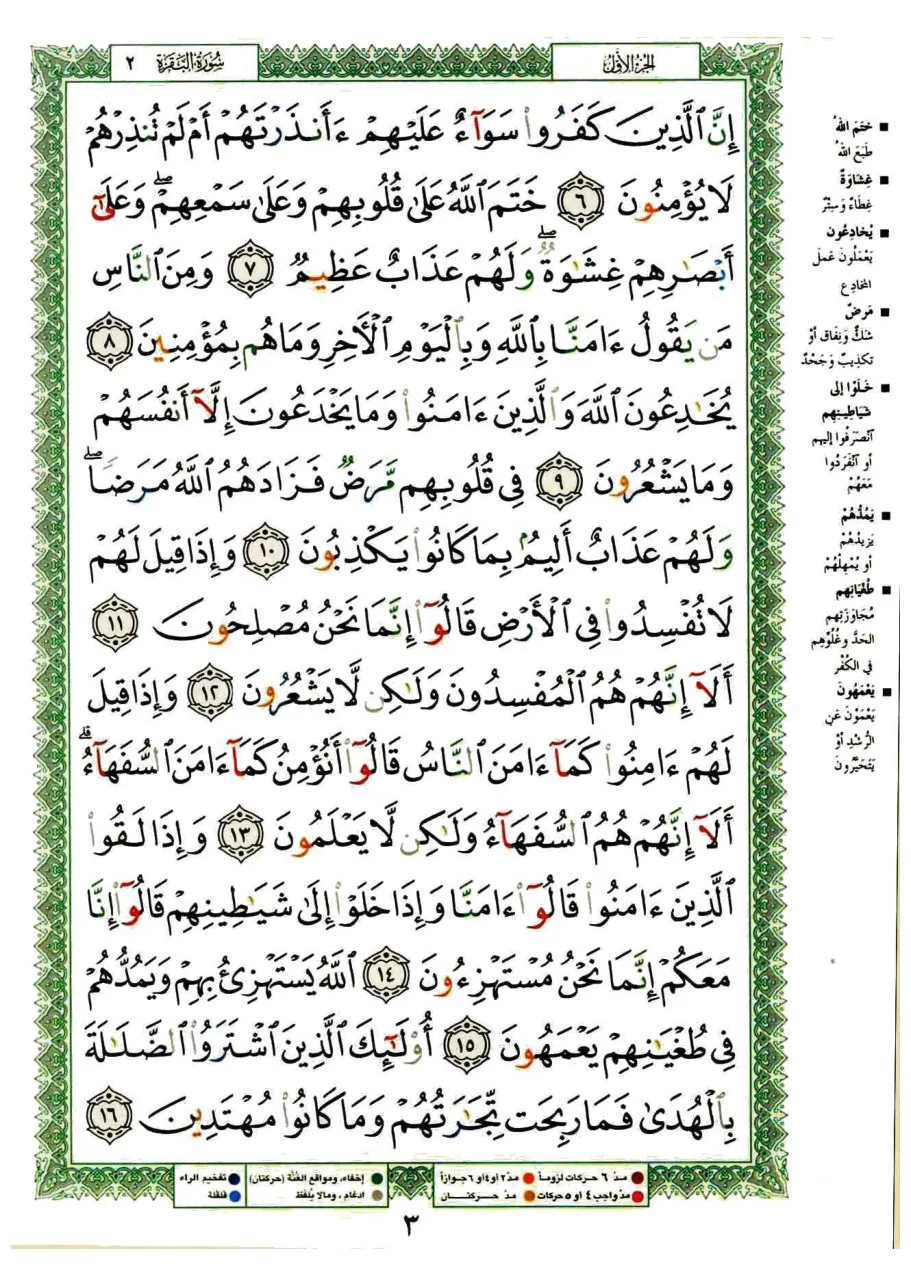 الجزء الأول
سورة البقرة ٢
إِنَّ ٱلَّذِينَ كَفَرُوا۟ سَوَآءٌ عَلَيْهِمْ ءَأَنذَرْتَهُمْ أَمْ لَمْ تُنذِرْهُمْ
لَا يُؤْمِنُونَ ٦ خَتَمَ ٱللَّهُ عَلَىٰ قُلُوبِهِمْ وَعَلَىٰ سَمْعِهِمْ ۖ وَعَلَىٰٓ
أَبْصَـٰرِهِمْ غِشَـٰوَةٌ ۖ وَلَهُمْ عَذَابٌ عَظِيمٌ ٧ وَمِنَ ٱلنَّاسِ
مَن يَقُولُ ءَامَنَّا بِٱللَّهِ وَبِٱلْيَوْمِ ٱلْـَٔاخِرِ وَمَا هُم بِمُؤْمِنِينَ ٨
يُخَـٰدِعُونَ ٱللَّهَ وَٱلَّذِينَ ءَامَنُوا۟ وَمَا يَخْدَعُونَ إِلَّآ أَنفُسَهُمْ
وَمَا يَشْعُرُونَ ٩ فِى قُلُوبِهِم مَّرَضٌ فَزَادَهُمُ ٱللَّهُ مَرَضًا ۖ
وَلَهُمْ عَذَابٌ أَلِيمٌۢ بِمَا كَانُوا۟ يَكْذِبُونَ ١٠ وَإِذَا قِيلَ لَهُمْ
لَا تُفْسِدُوا۟ فِى ٱلْأَرْضِ قَالُوٓا۟ إِنَّمَا نَحْنُ مُصْلِحُونَ ١١
أَلَآ إِنَّهُمْ هُمُ ٱلْمُفْسِدُونَ وَلَـٰكِن لَّا يَشْعُرُونَ ١٢ وَإِذَا قِيلَ
لَهُمْ ءَامِنُوا۟ كَمَآ ءَامَنَ ٱلنَّاسُ قَالُوٓا۟ أَنُؤْمِنُ كَمَآ ءَامَنَ ٱلسُّفَهَآءُ ۗ
أَلَآ إِنَّهُمْ هُمُ ٱلسُّفَهَآءُ وَلَـٰكِن لَّا يَعْلَمُونَ ١٣ وَإِذَا لَقُوا۟
ٱلَّذِينَ ءَامَنُوا۟ قَالُوٓا۟ ءَامَنَّا وَإِذَا خَلَوْا۟ إِلَىٰ شَيَـٰطِينِهِمْ قَالُوٓا۟ إِنَّا
مَعَكُمْ إِنَّمَا نَحْنُ مُسْتَهْزِءُونَ ١٤ ٱللَّهُ يَسْتَهْزِئُ بِهِمْ وَيَمُدُّهُمْ
فِى طُغْيَـٰنِهِمْ يَعْمَهُونَ ١٥ أُو۟لَـٰٓئِكَ ٱلَّذِينَ ٱشْتَرَوُا۟ ٱلضَّلَـٰلَةَ
بِٱلْهُدَىٰ فَمَا رَبِحَت تِّجَـٰرَتُهُمْ وَمَا كَانُوا۟ مُهْتَدِينَ ١٦
■ خَتَمَ اللهُ
طَبَعَ اللهُ
■ غِشَاوَةٌ
غِطَاءٌ وَسِتْرٌ
■ يُخادِعُون
يَعْمَلُونَ عَمَلَ
المُخادِع
■ مَرَضٌ
شَكٌّ وَنِفَاق أوْ
تكذِيبٌ وَجَحْدٌ
■ خَلَوْا إلى
شَيَاطِينِهِم
انْصَرَفُوا إليهم
أو انْفَرَدُوا
مَعَهُمْ
■ يَمُدُّهُمْ
يَزِيدُهُمْ
أو يُمْهِلُهُمْ
■ طُغْيَانِهِم
مُجَاوَزَتِهِم
الحَدَّ وغُلُوِّهِم
في الكُفْر
■ يَعْمَهُونَ
يَعْمَوْنَ عَنِ
الرُّشْدِ أوْ
يَتَحَيَّرُونَ
مدّ ٦ حركات لزوماً مدّ ٢ أو ٤ أو ٦ جوازاً
مدّ واجب ٤ أو ٥ حركات مدّ حـركتـــان
إخفاء، ومواقع الغُنَّة (حركتان) تفخيم الراء
ادغام، ومالا يُلفَظ قلقلة
٣